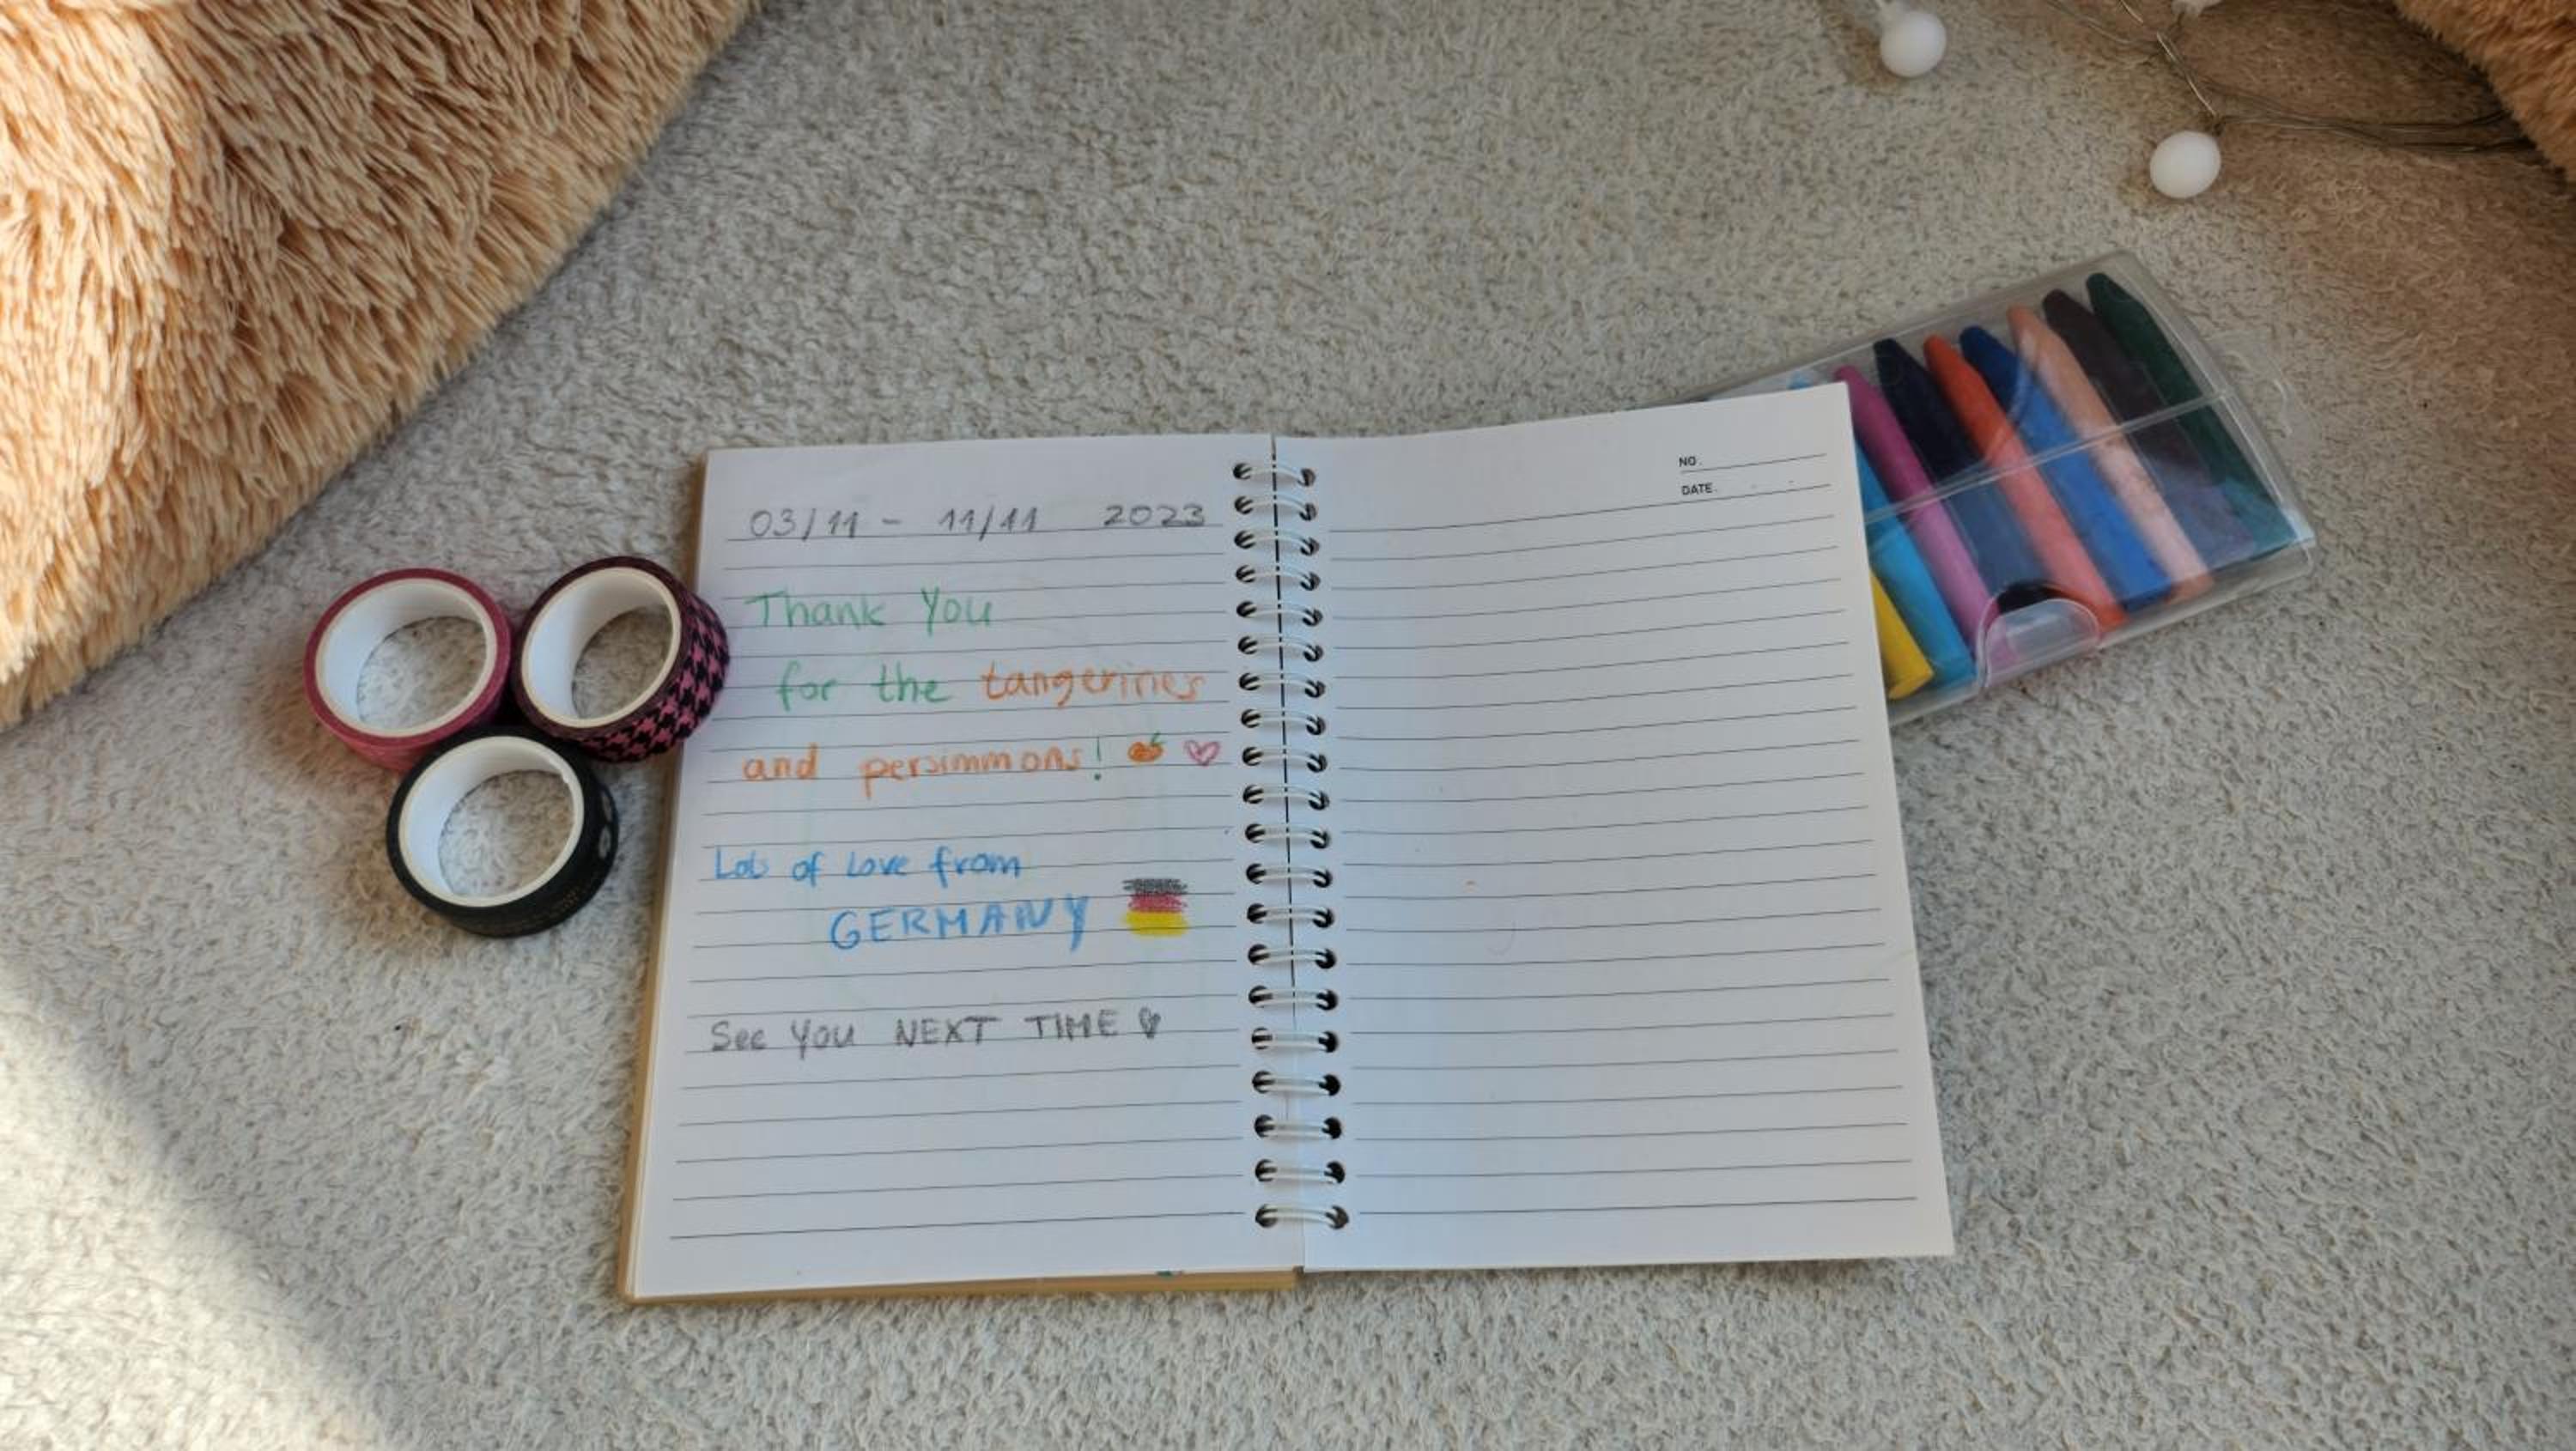 03/11 - 11/11 2023
Thank You
for the tangerines
and persimmons!
Lots of Love from
GERMANY
See You NEXT TIME
NO.
DATE.